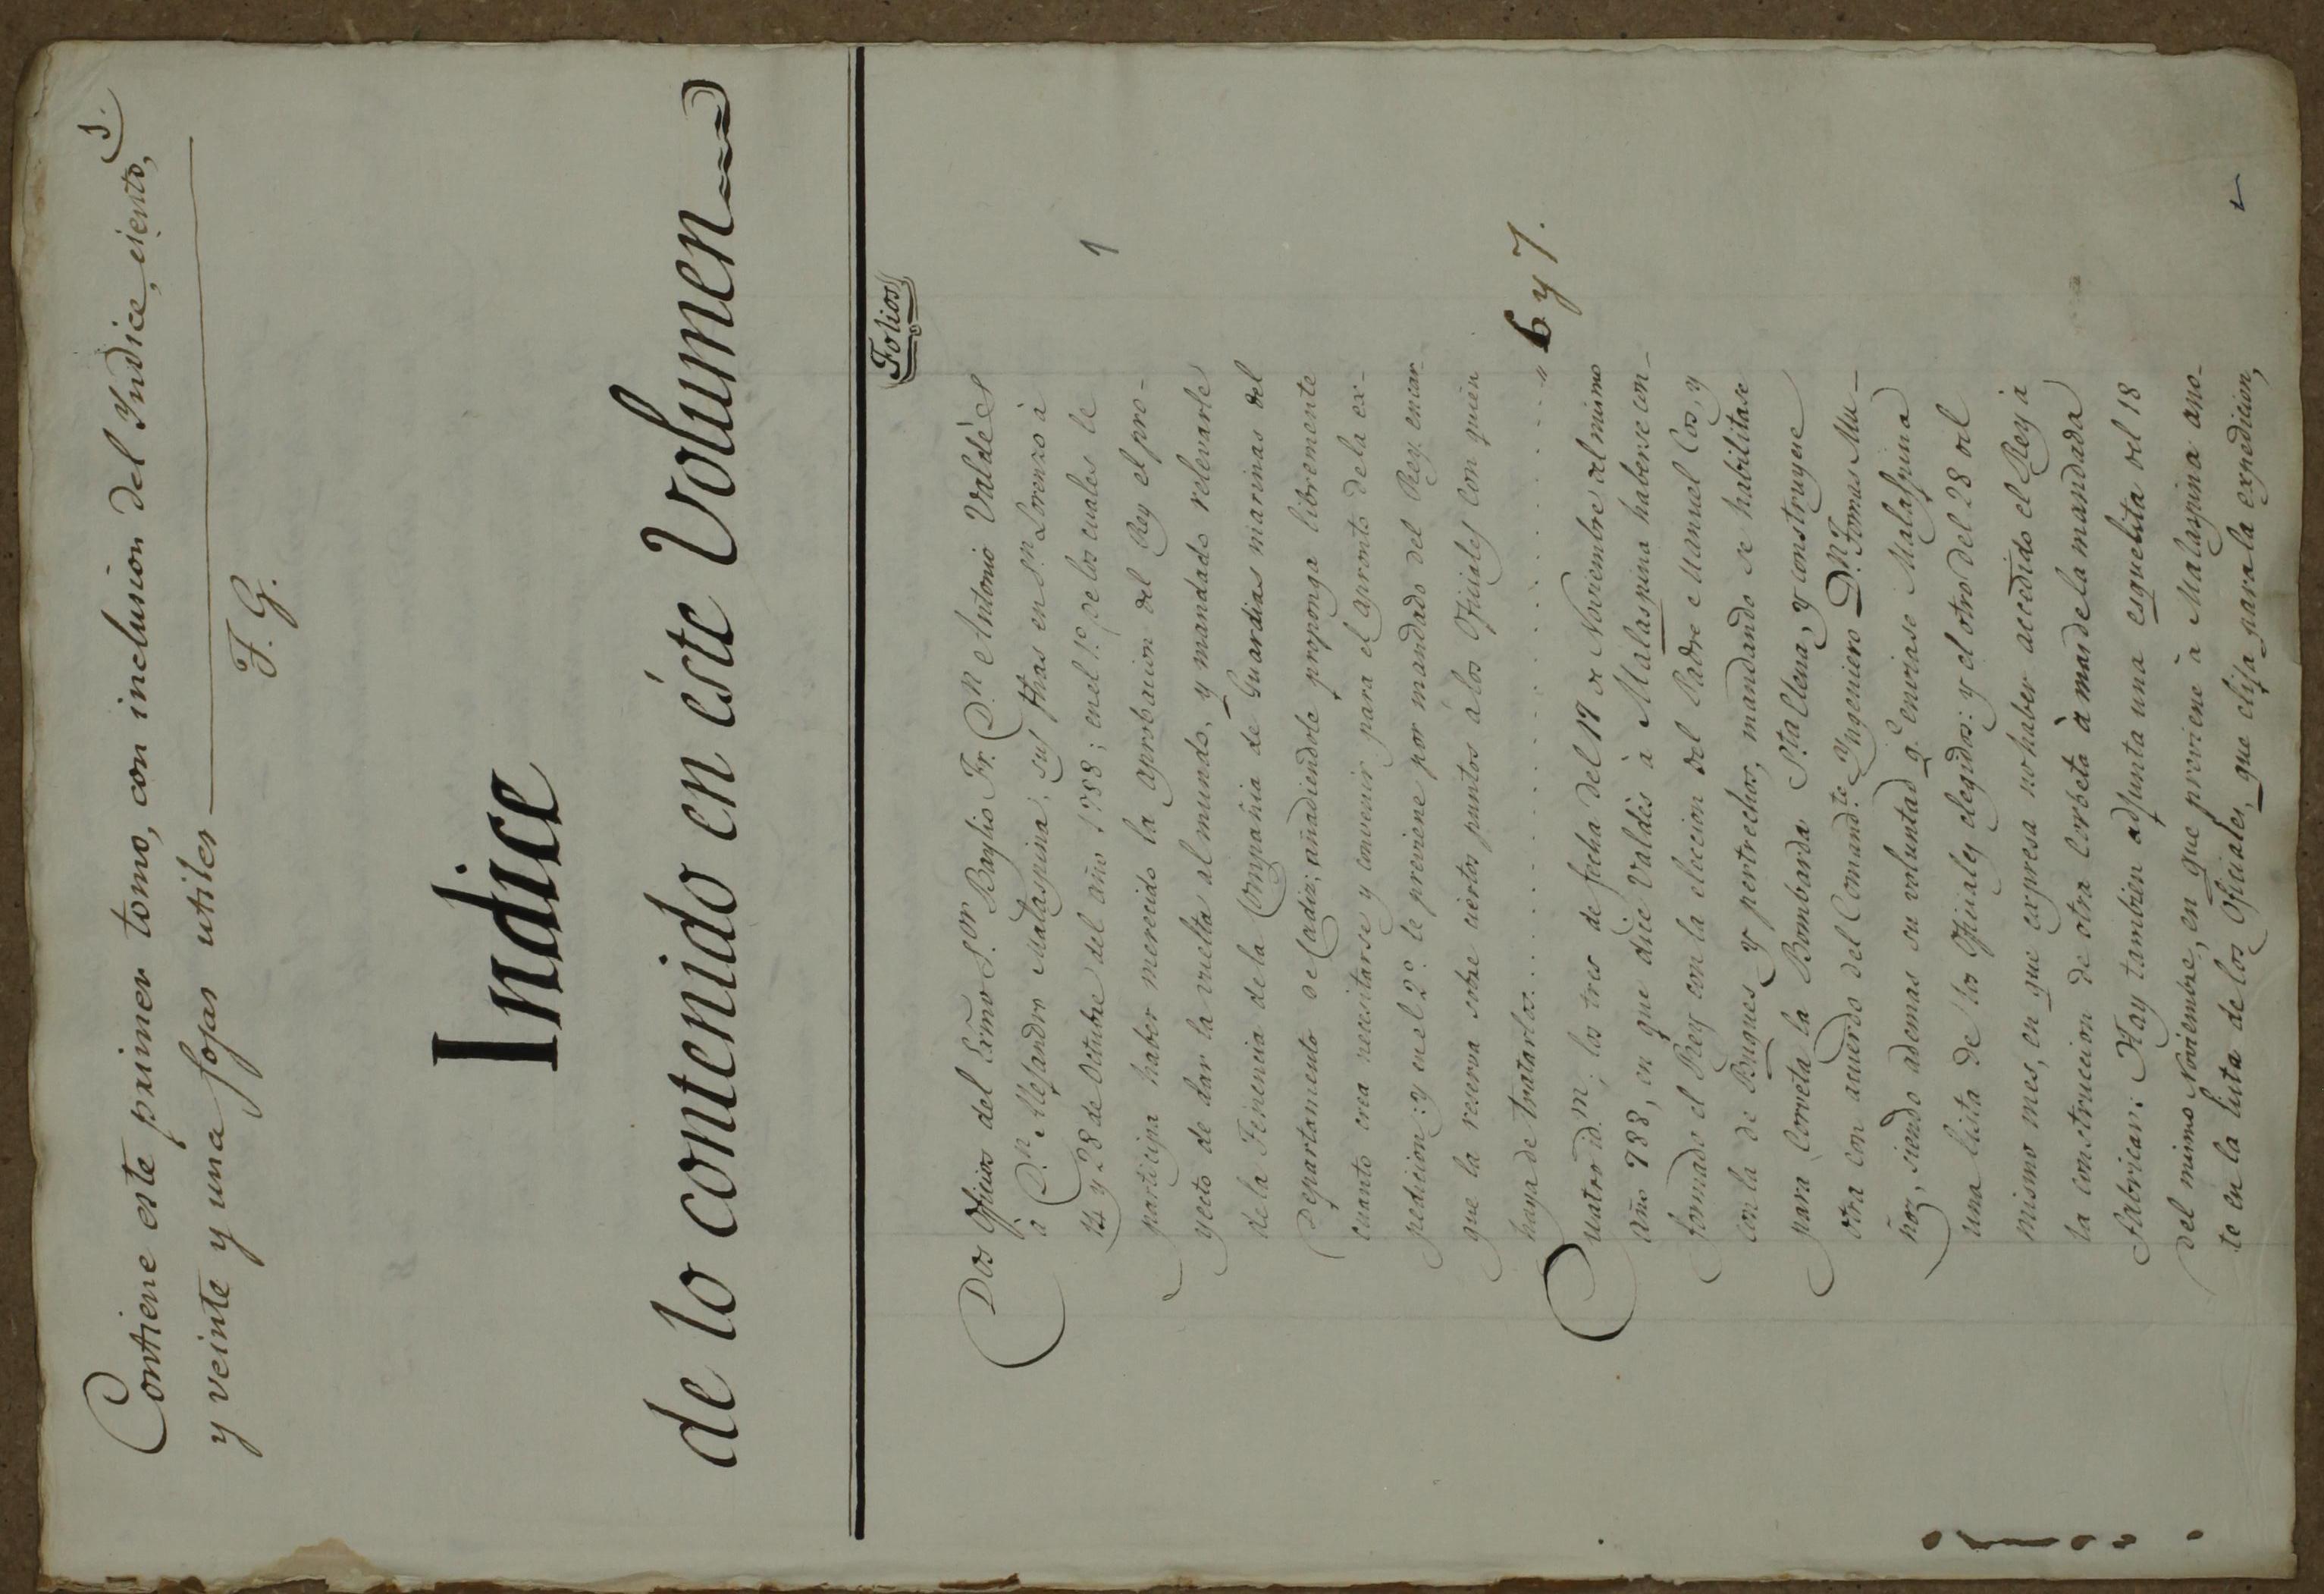 1.
Contiene este primer tomo, con inclusion del Yndice, ciento,
y veinte y una fojas utiles
F. G.
Indice
de lo contenido en éste Volumen
Folios
Dos Oficios del Exmo S.or Baylio Fr. D.n Antonio Valdès
à D.n Alejandro Malaspina, sus fhas en S.n Lorenzo à
14 y 28 de Octubre del año 1788; en el 1.o de los cuales le
participa haber merecido la aprobacion del Rey el pro-
yecto de dar la vuelta al mundo, y mandado relevarle
de la Tenencia de la Compañia de Guardias marinas del
Departamento de Cadiz; añadiendole proponga libremente
cuanto crea necesitarse y convenir para el apronto de la ex-
pedicion: y en el 2.o le previene por mandado del Rey encar
que la reserva sobre ciertos puntos à los Oficiales con quien
haya de tratarlos. " 6 y 7.
Cuatro id.m; los tres de fecha del 17 de Noviembre del mismo
año 788, en que dice Valdès à Malaspina haberse con-
formado el Rey con la eleccion del Padre Manuel Cos, y
con la de Buques y pertrechos, mandando se habilitase
para Corveta la Bombarda S.ta Elena, y construyese
otra con acuerdo del Comand.te Yngeniero D.n Tomas Mu-
ñoz, siendo ademas su voluntad q.e enviase Malaspina
una lista de los Oficiales elegidos: y el otro del 28 del
mismo mes, en que expresa no haber accedido el Rey à
la construccion de otra Corbeta à mas de la mandada
fabricar: Hay tambien adjunta una esquelita del 18
del mismo Noviembre, en que previene à Malaspina ano-
te en la lista de los Oficiales, que elija para la expedicion,
1